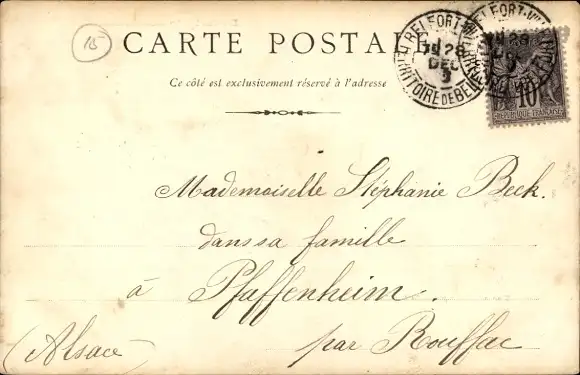 15
CARTE POSTALE
Ce côté est exclusivement réservé à l'adresse
BELFORT-VILLE
28
DEC
TERRITOIRE DE BEL
10
REPUBLIQUE FRANÇAISE
Mademoiselle Stéphanie Beck.
dans sa famille
à Pfaffenheim.
par Rouffac
(Alsace)